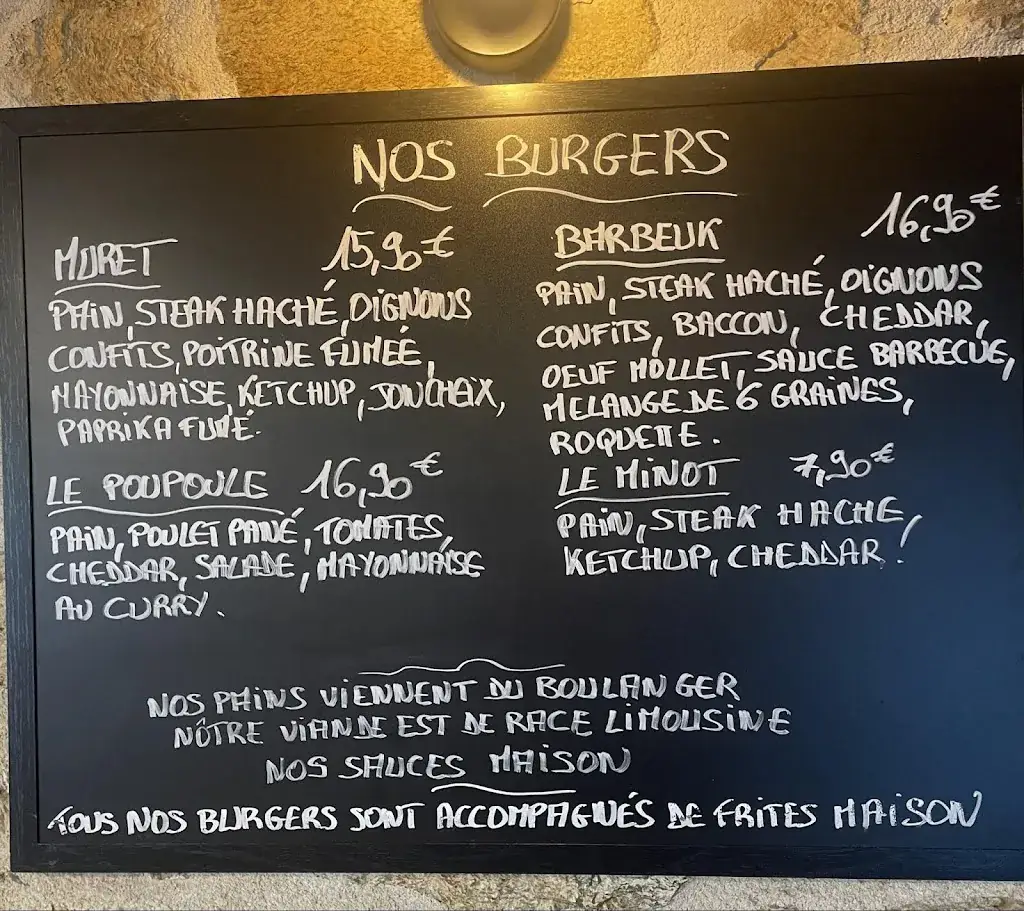 NOS BURGERS
MURET 15,90€
PAIN, STEAK HACHÉ, OIGNONS
CONFITS, POITRINE FUMÉE,
MAYONNAISE, KETCHUP, JONCHAIX,
PAPRIKA FUMÉ.
LE POUPOULE 16,90€
PAIN, POULET PANÉ, TOMATES,
CHEDDAR, SALADE, MAYONNAISE
AU CURRY.
BARBEUK 16,90€
PAIN, STEAK HACHÉ, OIGNONS
CONFITS, BACCON, CHEDDAR,
OEUF MOLLET, SAUCE BARBECUE,
MELANGE DE 6 GRAINES,
ROQUETTE.
LE MINOT 7,90€
PAIN, STEAK HACHE,
KETCHUP, CHEDDAR!
NOS PAINS VIENNENT DU BOULANGER
NÔTRE VIANDE EST DE RACE LIMOUSINE
NOS SAUCES MAISON
TOUS NOS BURGERS SONT ACCOMPAGNÉS DE FRITES MAISON